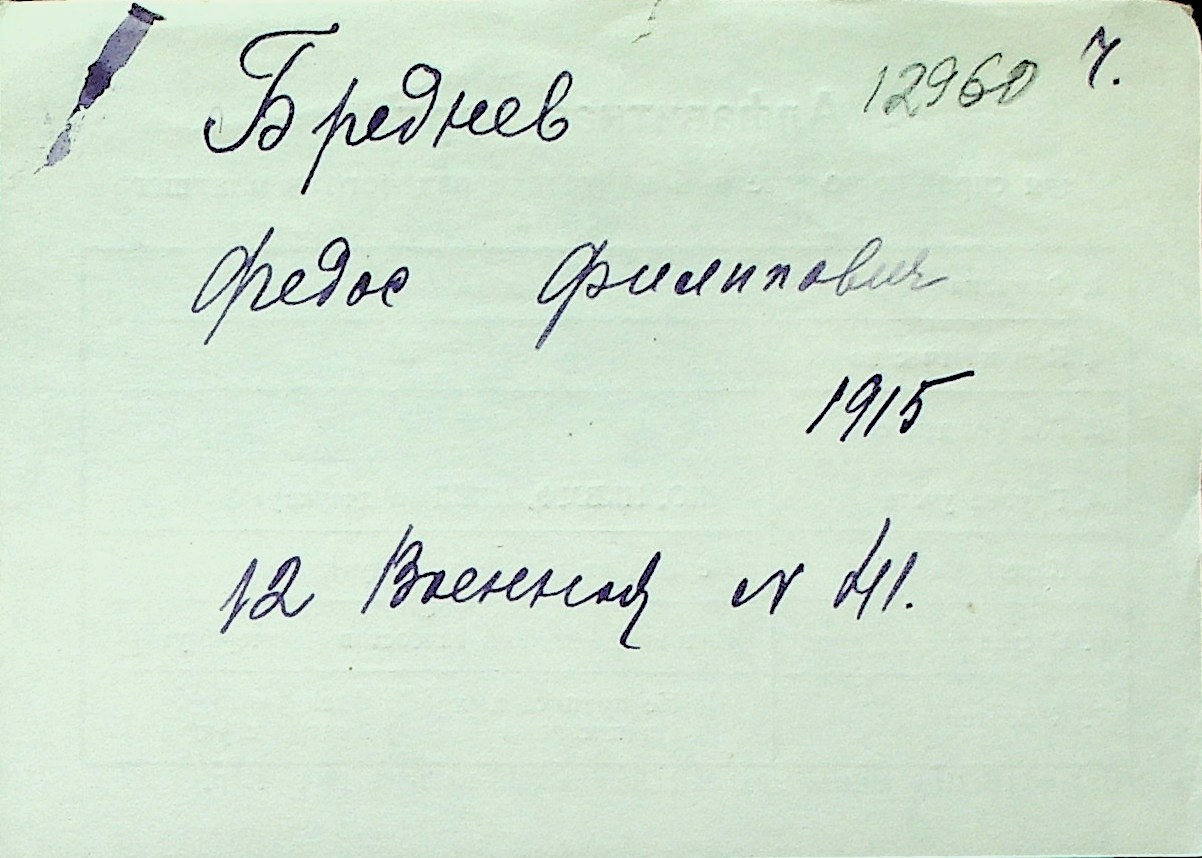 Бреднев 12960 ч.
Федос Филипович
1915
12 Военная N 41.